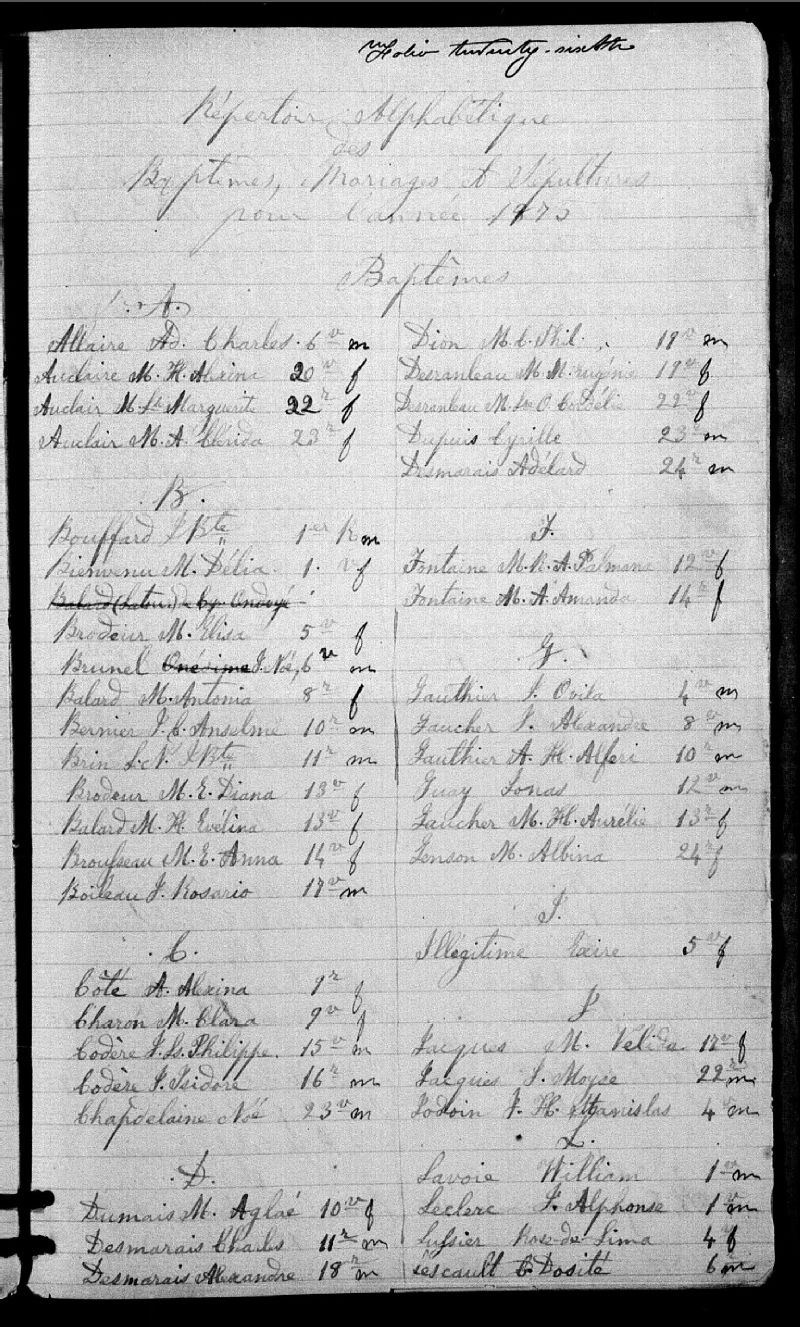 Folio twenty-sixth
Répertoire Alphabétique
des
Baptêmes, Mariages et Sépultures
pour l'année 1875
Baptêmes
A.
Allaire Ad. Charles. 6 v m
Auclaire M. H. Alexina 20 v f
Auclair M. Ls Marguerite 22 r f
Auclair M. A. Clérida 23 r f
B.
Bouffard J Bte 1er R m
Bienvenu M. Délia. 1. v f
Balard (Latour) Cyp. Ondoyé
Brodeur M. Elisa 5 v f
Brunel Onésime J. Noé, 6 v m
Balard M. Antonia 8 r f
Bernier J. C. Anselme 10 r m
Brin L. N. J Bte 11 r m
Brodeur M. E. Diana 13 v f
Balard M. H. Evélina 13 v f
Brousseau M. E. Anna 14 v f
Boileau J. Rosario 17 v m
C.
Côté A. Alexina 9 r f
Charon M. Clara 9 v f
Codère J. Ls. Philippe. 15 v m
Codère J. Isidore 16 r m
Chapdelaine Noé 23 v m
D.
Dumais M. Aglaé 10 v f
Desmarais Charles 11 r m
Desmarais Alexandre 18 r m
Dion M. C. Phil. 19 v m
Desranleau M. M. Eugénie 19 v f
Desranleau M. Ls O. Cordélie 22 r f
Dupuis Cyrille 23 r m
Desmarais Adélard 24 r m
F.
Fontaine M. R. A. Palmana 12 v f
Fontaine M. A. Amanda 14 r f
G.
Gauthier J. Ovila 4 v m
Gaucher J. Alexandre 8 v m
Gauthier A. H. Alferi 10 r m
Guay Jonas 12 v m
Gaucher M. H. Aurélie 13 r f
Genson M. Albina 24 r f
I.
Illégitime 5 v f
J
Jacques M. Vélida. 17 v f
Jacques J. Moyse 22 r m
Jodoin J. H. Stanislas 4 v m
L.
Lavoie William 1 v m
Leclerc J. Alphonse 1 v m
Lussier Rose-de-Lima 4 v f
Lescault C. Dosité 6 m